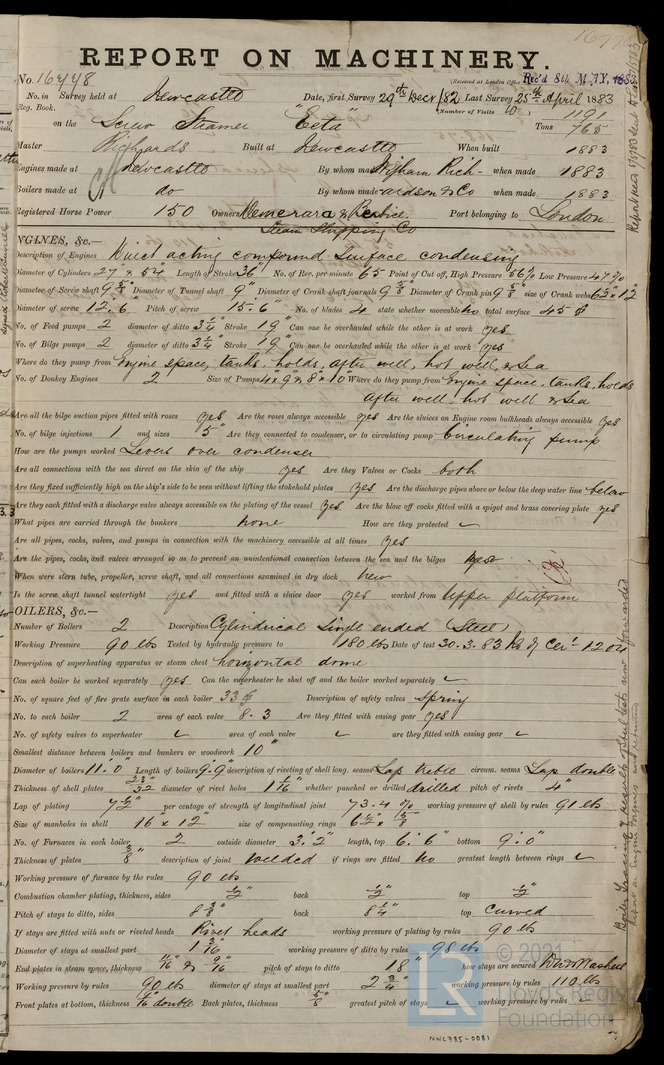 REPORT ON MACHINERY.
No. 16448
(Received at London Office Rec'd 8th MAY, 1883
No. in Survey held at Newcastle Date, first Survey 29th Decr /82 Last Survey 25th April 1883
Reg. Book. (Number of Visits 40)
on the Screw Steamer "Ceta" Tons 1191
765
Master Richards Built at Newcastle When built 1883
Engines made at Newcastle By whom made Wigham Rich- when made 1883
Boilers made at do By whom made ardson & Co when made 1883
Registered Horse Power 150 Owners Demerara & Berbice Port belonging to London
Steam Shipping Co
ENGINES, &c.—
Description of Engines Direct acting compound surface condensing
Diameter of Cylinders 27 & 54" Length of Stroke 36" No. of Rev. per minute 65 Point of Cut off, High Pressure Low Pressure
Diameter of Screw shaft 9 5/8" Diameter of Tunnel shaft 9" Diameter of Crank shaft journals 9 5/8" Diameter of Crank pin 9 5/8" size of Crank webs
Diameter of screw 12.6" Pitch of screw 15.6" No. of blades 4 state whether moveable no total surface 45
No. of Feed pumps 2 diameter of ditto 3 1/4" Stroke 19" Can one be overhauled while the other is at work yes
No. of Bilge pumps 2 diameter of ditto 3 1/4" Stroke 19" Can one be overhauled while the other is at work yes
Where do they pump from Engine space, tanks, holds, after well, hot well, & Sea
No. of Donkey Engines 2 Size of Pumps 4 x 9" & 8" x 10" Where do they pump from Engine space, tanks, holds
After well, hot well & Sea
Are all the bilge suction pipes fitted with roses yes Are the roses always accessible yes Are the sluices on Engine room bulkheads always accessible yes
No. of bilge injections 1 and sizes 5" Are they connected to condenser, or to circulating pump Circulating pump
How are the pumps worked Levers over condenser
Are all connections with the sea direct on the skin of the ship yes Are they Valves or Cocks both
Are they fixed sufficiently high on the ship's side to be seen without lifting the stokehold plates yes Are the discharge pipes above or below the deep water line below
Are they each fitted with a discharge valve always accessible on the plating of the vessel yes Are the blow off cocks fitted with a spigot and brass covering plate yes
What pipes are carried through the bunkers none How are they protected ✓
Are all pipes, cocks, valves, and pumps in connection with the machinery accessible at all times yes
Are the pipes, cocks, and valves arranged so as to prevent an unintentional connection between the sea and the bilges yes
When were stern tube, propeller, screw shaft, and all connections examined in dry dock new
Is the screw shaft tunnel watertight yes and fitted with a sluice door yes worked from Upper platform
BOILERS, &c.—
Number of Boilers 2 Description Cylindrical Single ended (Steel)
Working Pressure 90 lbs Tested by hydraulic pressure to 180 lbs Date of test 30.3.83 No of Cert 1204
Description of superheating apparatus or steam chest horizontal dome
Can each boiler be worked separately yes Can the superheater be shut off and the boiler worked separately ✓
No. of square feet of fire grate surface in each boiler 33 Description of safety valves Spring
No. to each boiler 2 area of each valve 8.3 Are they fitted with easing gear yes
No. of safety valves to superheater ✓ area of each valve ✓ are they fitted with easing gear ✓
Smallest distance between boilers and bunkers or woodwork 10"
Diameter of boilers 11.0" Length of boilers 9.9" description of riveting of shell long. seams Lap treble circum. seams Lap double
Thickness of shell plates 23/32" diameter of rivet holes 1 1/16" whether punched or drilled drilled pitch of rivets 4"
Lap of plating 7 1/2" per centage of strength of longitudinal joint 73.4 % working pressure of shell by rules 91 lbs
Size of manholes in shell 16" x 12" size of compensating rings 6 1/2" x 5/8"
No. of Furnaces in each boiler 2 outside diameter 3.2" length, top 6.6" bottom 9.0"
Thickness of plates 3/8" description of joint Welded if rings are fitted No greatest length between rings ✓
Working pressure of furnace by the rules 90 lbs
Combustion chamber plating, thickness, sides 1/2" back 1/2" top 1/2"
Pitch of stays to ditto, sides 8 3/8" back 8 1/4" top Curved
If stays are fitted with nuts or riveted heads Rivet heads working pressure of plating by rules 90 lbs
Diameter of stays at smallest part 1 3/16" working pressure of ditto by rules 98 lbs
End plates in steam space, thickness 11/16" & 9/16" pitch of stays to ditto 18" how stays are secured
Working pressure by rules 90 lbs diameter of stays at smallest part 2 3/4" working pressure by rules 110 lbs
Front plates at bottom, thickness double Back plates, thickness 5/8" greatest pitch of stays ✓ working pressure by rules ✓
LR
© 2021
Lloyd's Register
Foundation
NWC785-0081